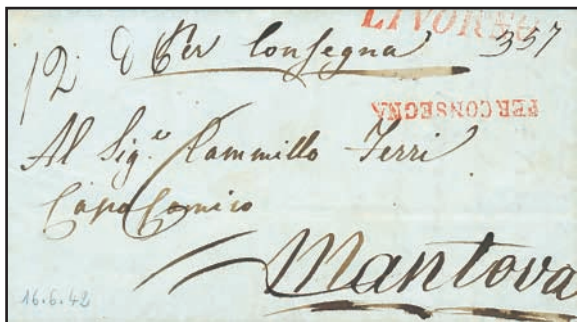 LIVORNO
12 Per Consegna 357
PER CONSEGNA
Al Sig.º Cammillo Ferri
Capo Comico
Mantova
16.6.42